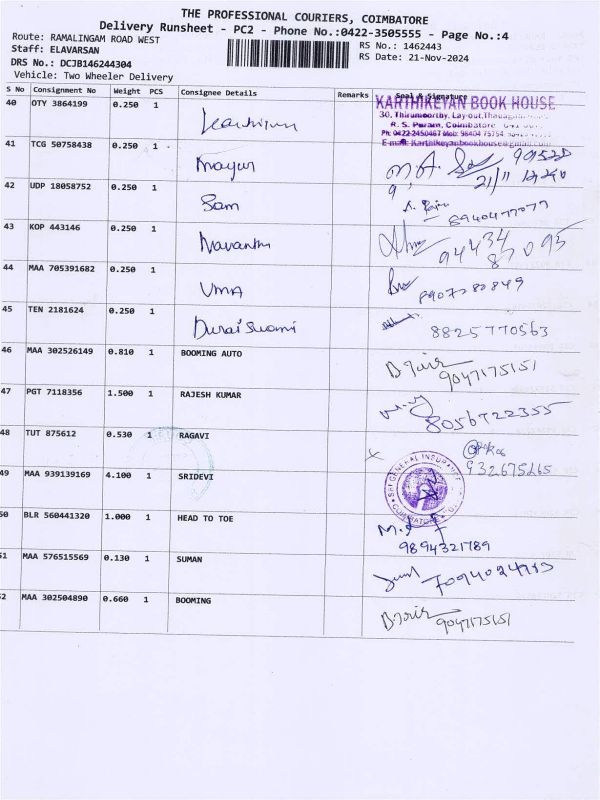 THE PROFESSIONAL COURIERS, COIMBATORE
Delivery Runsheet - PC2 - Phone No.:0422-3505555 - Page No.:4
Route: RAMALINGAM ROAD WEST
RS No.: 1462443
Staff: ELAVARSAN
RS Date: 21-Nov-2024
DRS No.: DCJB146244304
Vehicle: Two Wheeler Delivery
S No Consignment No Weight PCS Consignee Details Remarks Seal & Signature
40 OTY 3864199 0.250 1
KARTHIKEYAN BOOK HOUSE
30, Thirumoorthy, Lay-out,
R. S. Puram, Coimbatore
Ph: 0422-2450467 Mob: 98404 75754
E-mail: karthikeyanbookhouse@gmail.com
41 TCG 50758438 0.250 1 Mayur
21/11
42 UDP 18058752 0.250 1 Sam
8940477077
43 KOP 443146 0.250 1
94434
44 MAA 705391682 0.250 1 UMA
45 TEN 2181624 0.250 1 Durai Swami 8825770563
46 MAA 302526149 0.810 1 BOOMING AUTO
9047175151
47 PGT 7118356 1.500 1 RAJESH KUMAR
8056722355
48 TUT 875612 0.530 1 RAGAVI
932675265
49 MAA 939139169 4.100 1 SRIDEVI
SBI GENERAL INSURANCE
COIMBATORE
50 BLR 560441320 1.000 1 HEAD TO TOE
9894321789
51 MAA 576515569 0.130 1 SUMAN
52 MAA 302504890 0.660 1 BOOMING
9047175151